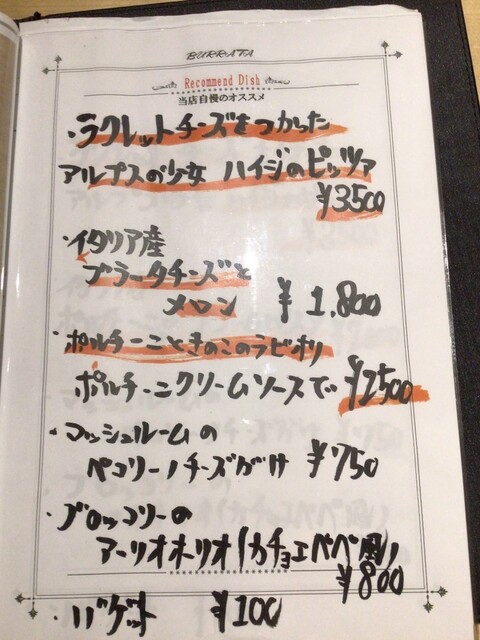 BURRATA
Recommend Dish
当店自慢のオススメ
・ラクレットチーズをつかった
アルプスの少女 ハイジのピッツァ
¥3500
・イタリア産
ブラータチーズと
メロン ¥1,800
・ポルチーニときのこのラビオリ
ポルチーニクリームソースで ¥2500
・マッシュルームの
ペコリーノチーズがけ ¥750
・ブロッコリーの
アーリオオーリオ(カチョエペペ風)
¥800
・バゲット ¥100